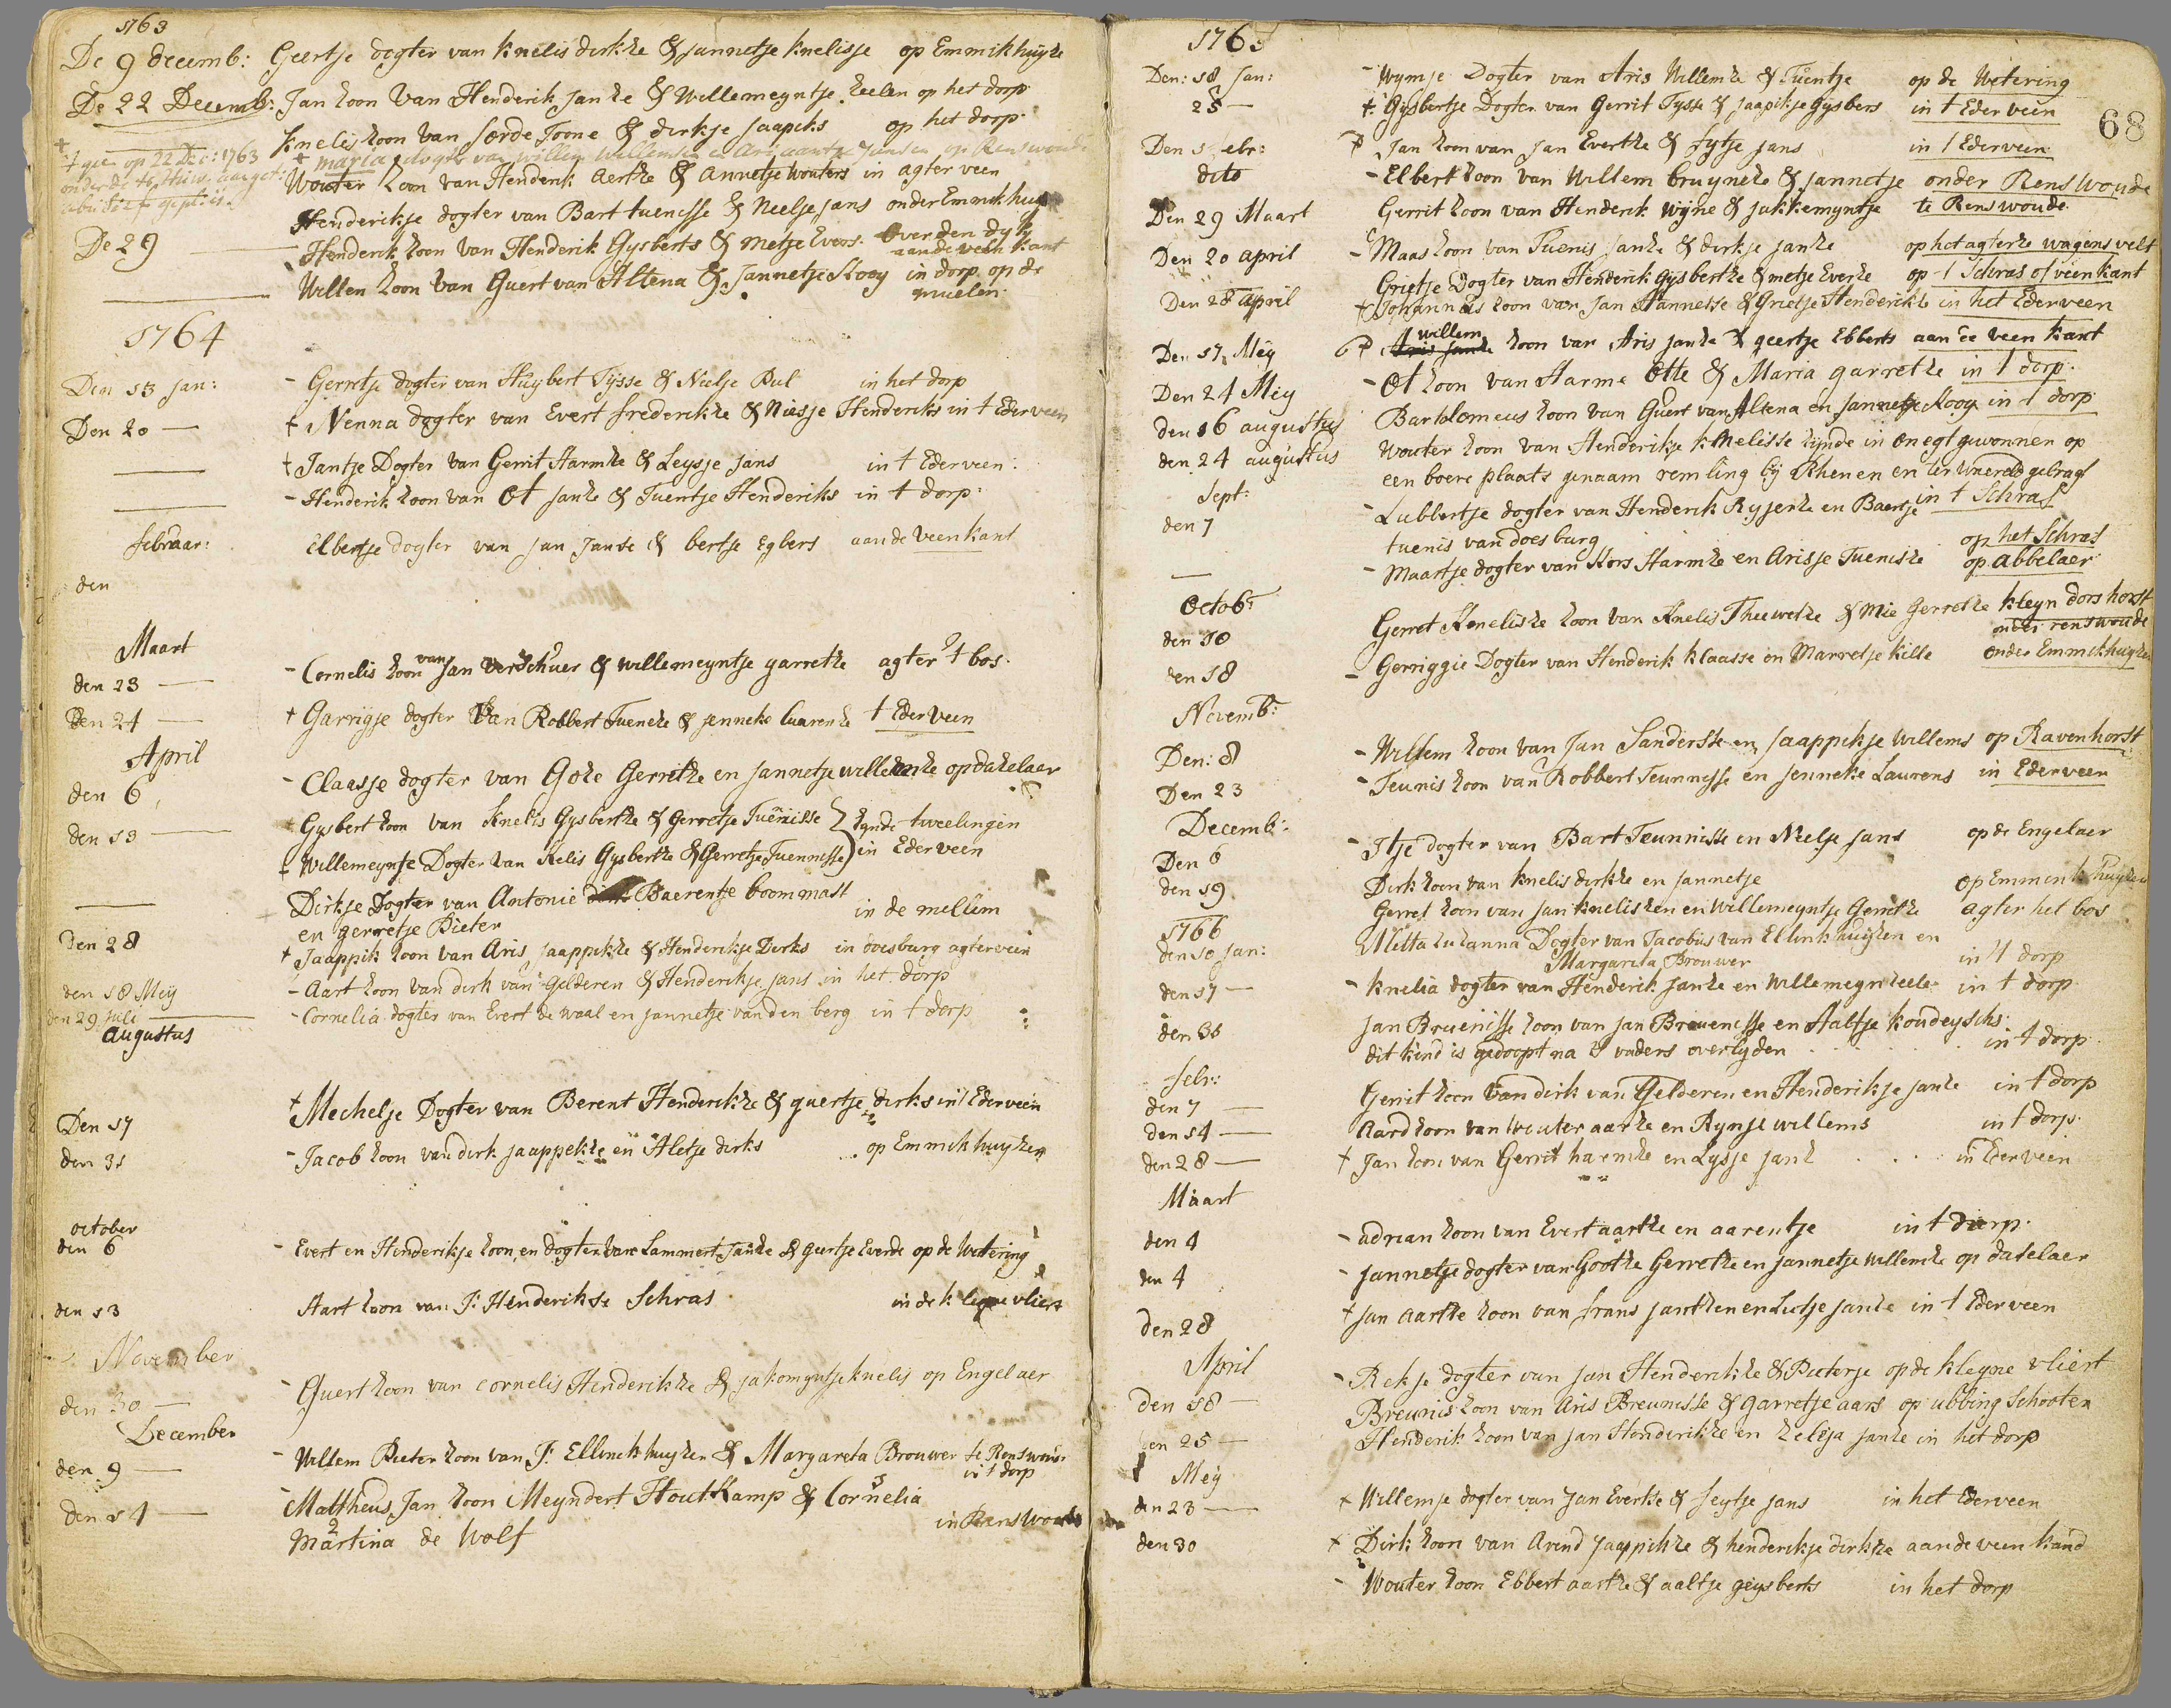 1763
De 9 decemb: Geertje dogter van knelis dirkze & Jannetje knelisse op Emmikhuyze
De 22 Decemb: Jan zoon van Henderik Janze & Willemeyntje zeelen op het dorp
knelis zoon van Jorde Toone & dirkje Jaapiks op het dorp
op 22 Dec: 1763
maria dogter van willem willemsen en Arijaantie Jansen op Renswoude
Wouter zoon van Henderik Aertze & Annetje Wouters in agter veen
Henderikje dogter van Bart tuenisse & Neelje Jans onder Emmikhuyze
De 29 Henderik zoon van Henderik Gysberts & metje Evers. Over den dyk
aan de veen kant
Willen zoon van Guert van Altena & Jannetje Kooy in dorp op de
1764
Den 13 Jan: Gerretje dogter van Huybert Tysse & Neelje Bul in het dorp
Den 20 — † Nenna dogter van Evert frederikze & Niesje Henderiks in t Ederveen
† Jantje Dogter van Gerrit Harmze & Leysje Jans in t Ederveen:
Henderik zoon van Ot Janze & Tuentje Henderiks in t dorp:
februaar: Elbertje dogter van Jan Janse & bertje Egbers aan de veenkant
den
Maart
den 23 — Cornelis zoon van Jan Verschuer & willemeyntje garretze agter 't bos.
Den 24 — † Garrigje dogter Van Robbert Tuenize & jenneke luarenze t Ederveen
April
den 6 Claasje dogter van Goze Gerritze en Jannetje willemze op dazelaer
den 13 — Gysbert zoon van Knelis Gysbertze & Gerretje Tuenisse zynde tweelingen
† Willemeyntje Dogter van Kelis Gysbertze & Gerretje Tuennisse in Ederveen
Dirkje Dogter van Antonie Baerentze boommast
en gerretje Pieter in de mellim
Den 28 † Jaappik zoon van Aris Jaappikze & Henderikje Dirks in doesburg agterveen
den 18 Mey Aart zoon van dirk van Gelderen & Henderikje Jans in het dorp
den 29 Juli Cornelia dogter van Evert de waal en Jannetje van den berg in t dorp
Augustus
Den 17 † Mechelje Dogter van Berent Henderikze & guertje dirks in t Ederveen
den 31 Jacob zoon van dirk Jaappekze en Aletje dirks op Emmikhuyzen
october
den 6 Evert en Henderikje zoon en dogter van Lammert Janze & guertje Everde op de Wetering
den 13 Aart zoon van J: Henderikse Schras in de kleyne vliert
November
den 30 — Guert zoon van cornelis Henderikze & jakomyntje knelis op Engelaer
December
den 9 — Willem Pieter zoon van J: Ellinckhuyzen & Margareta Brouwer te Renswou:
in t dorp
den 14 — Mattheus Jan zoon Meyndert Houtkamp & Cornelia
Martina de Wolf in Renswoude
1765
68
Den: 18 Jan: Wymje Dogter van Aris Willemze & Tuentje op de Wetering
25 — † Gysbertje Dogter van Gerrit Tysse & Jaapikje Gysbers in t Ederveen
Den 1 febr: Jan zoon van Jan Evertze & fytje Jans in t Ederveen
dito Elbert zoon van Willem bruyneze & Jannetje onder Renswoude
Den 29 Maart Gerrit zoon van Henderik Wyne & Jakkemyntje te Renswoude
Den 20 april Maas zoon van Tuenis Janze & dirkje Janze op het agterze wagensvelt
Grietje Dogter van Henderik Gysbertze & metje Evertze op t Schras of veenkant
Den 28 april † Johannes zoon van Jan Hannesse & Grietje Henderikze in het Ederveen
willem
Den 17 Mey zoon van Aris Janze & geertje Ebberts aan de veen kant
Den 24 Mey Ot zoon van Harme Otte & Maria garretze in t dorp.
den 16 augustus Bartolomeus zoon van Guert van Altena en Jannetje Kooy in t dorp
den 24 augustus Wouter zoon van Henderikje knelisse zynde in onegt gewonnen op
een boere plaats genaam remling by Rhenen en ter waereld gebragt
Sept:
den 7 Lubbertje dogter van Henderik Ryjerze en Baertje in t Schras
tuenis van doesburg
op het Schras
Maartje dogter van Kors Harmze en Arisje Tuenisze op abbelaer
Octobr
den 10 Gerret Knelisze zoon van Knelis Theewetze & Mie Gerretze kleyn dorshorst
onder renswoude
den 18 Gerriggie Dogter van Henderik Klaasse en Marretje kille onder Emmikhuyzen
Novemb:
Den: 8 Willem zoon van Jan Sandersse en Jaappikje willems op Ravenhorst
Den 23 Teunis zoon van Robbert Teunnisse en Jenneke Laurens in Ederveen
Decemb:
Den 6 Itje dogter van Bart Teunnisse en Neelje Jans op de Engelaer
den 19 Dirk zoon van knelis dirkze en Jannetje op Emmenkhuyzen
Gerret zoon van Jan knelisken en Willemeyntje Gerritze agter het bos
1766
den 10 Jan: Metta Suzanna Dogter van Jacobus van Ellinkhuyzen en
Margareta Brouwer in 't dorp
den 17 — knelia dogter van Henderik Janze en Willemeyn zeele in t dorp
den 31 Jan Bruenisse zoon van Jan Breuenisse en Aaltje koudeyschs:
dit kind is gedoopt na s vaders overlyden in t dorp.
febr:
den 7 — Gerrit zoon van dirk van Gelderen en Henderikje Janze in t dorp
den 14 — Aard zoon van Wouter aarze en Rynje willems in t dorp.
den 28 — † Jan zoon van Gerrit harmze en Lysje Janz in Ederveen
Maart
den 4 adrian zoon van Evert aartze en aarentje in t dorp.
den 4 Jannetje dogter van Gootze Gerretze en Jannetje Willemze op daselaer
den 28 † Jan Aartze zoon van frans Jantzen en Lutje Janze in t Ederveen
April
Rekje dogter van Jan Henderikze & Pieterje op de kleyne vliert
den 18 — Breunis zoon van Aris Breunisse & garretje aars op ubbing Schooten
den 25 — Henderik zoon van Jan Henderikze en Zelija Janze in het dorp
Mey
den 23 — † Willemje dogter van Jan Evertse & feytje Jans in het Ederveen
den 30 † Dirk zoon van Arend Jaappikze & henderikje dirkze aan de veen kand
Wouter zoon Ebbert aartze & aaltje geysberts in het dorp